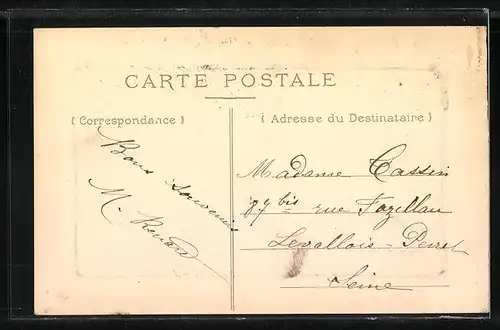 CARTE POSTALE
( Correspondance )
( Adresse du Destinataire )
Bons souvenirs
M. Renard
Madame Cassin
87 bis rue Fazillau
Levallois-Perret
Seine